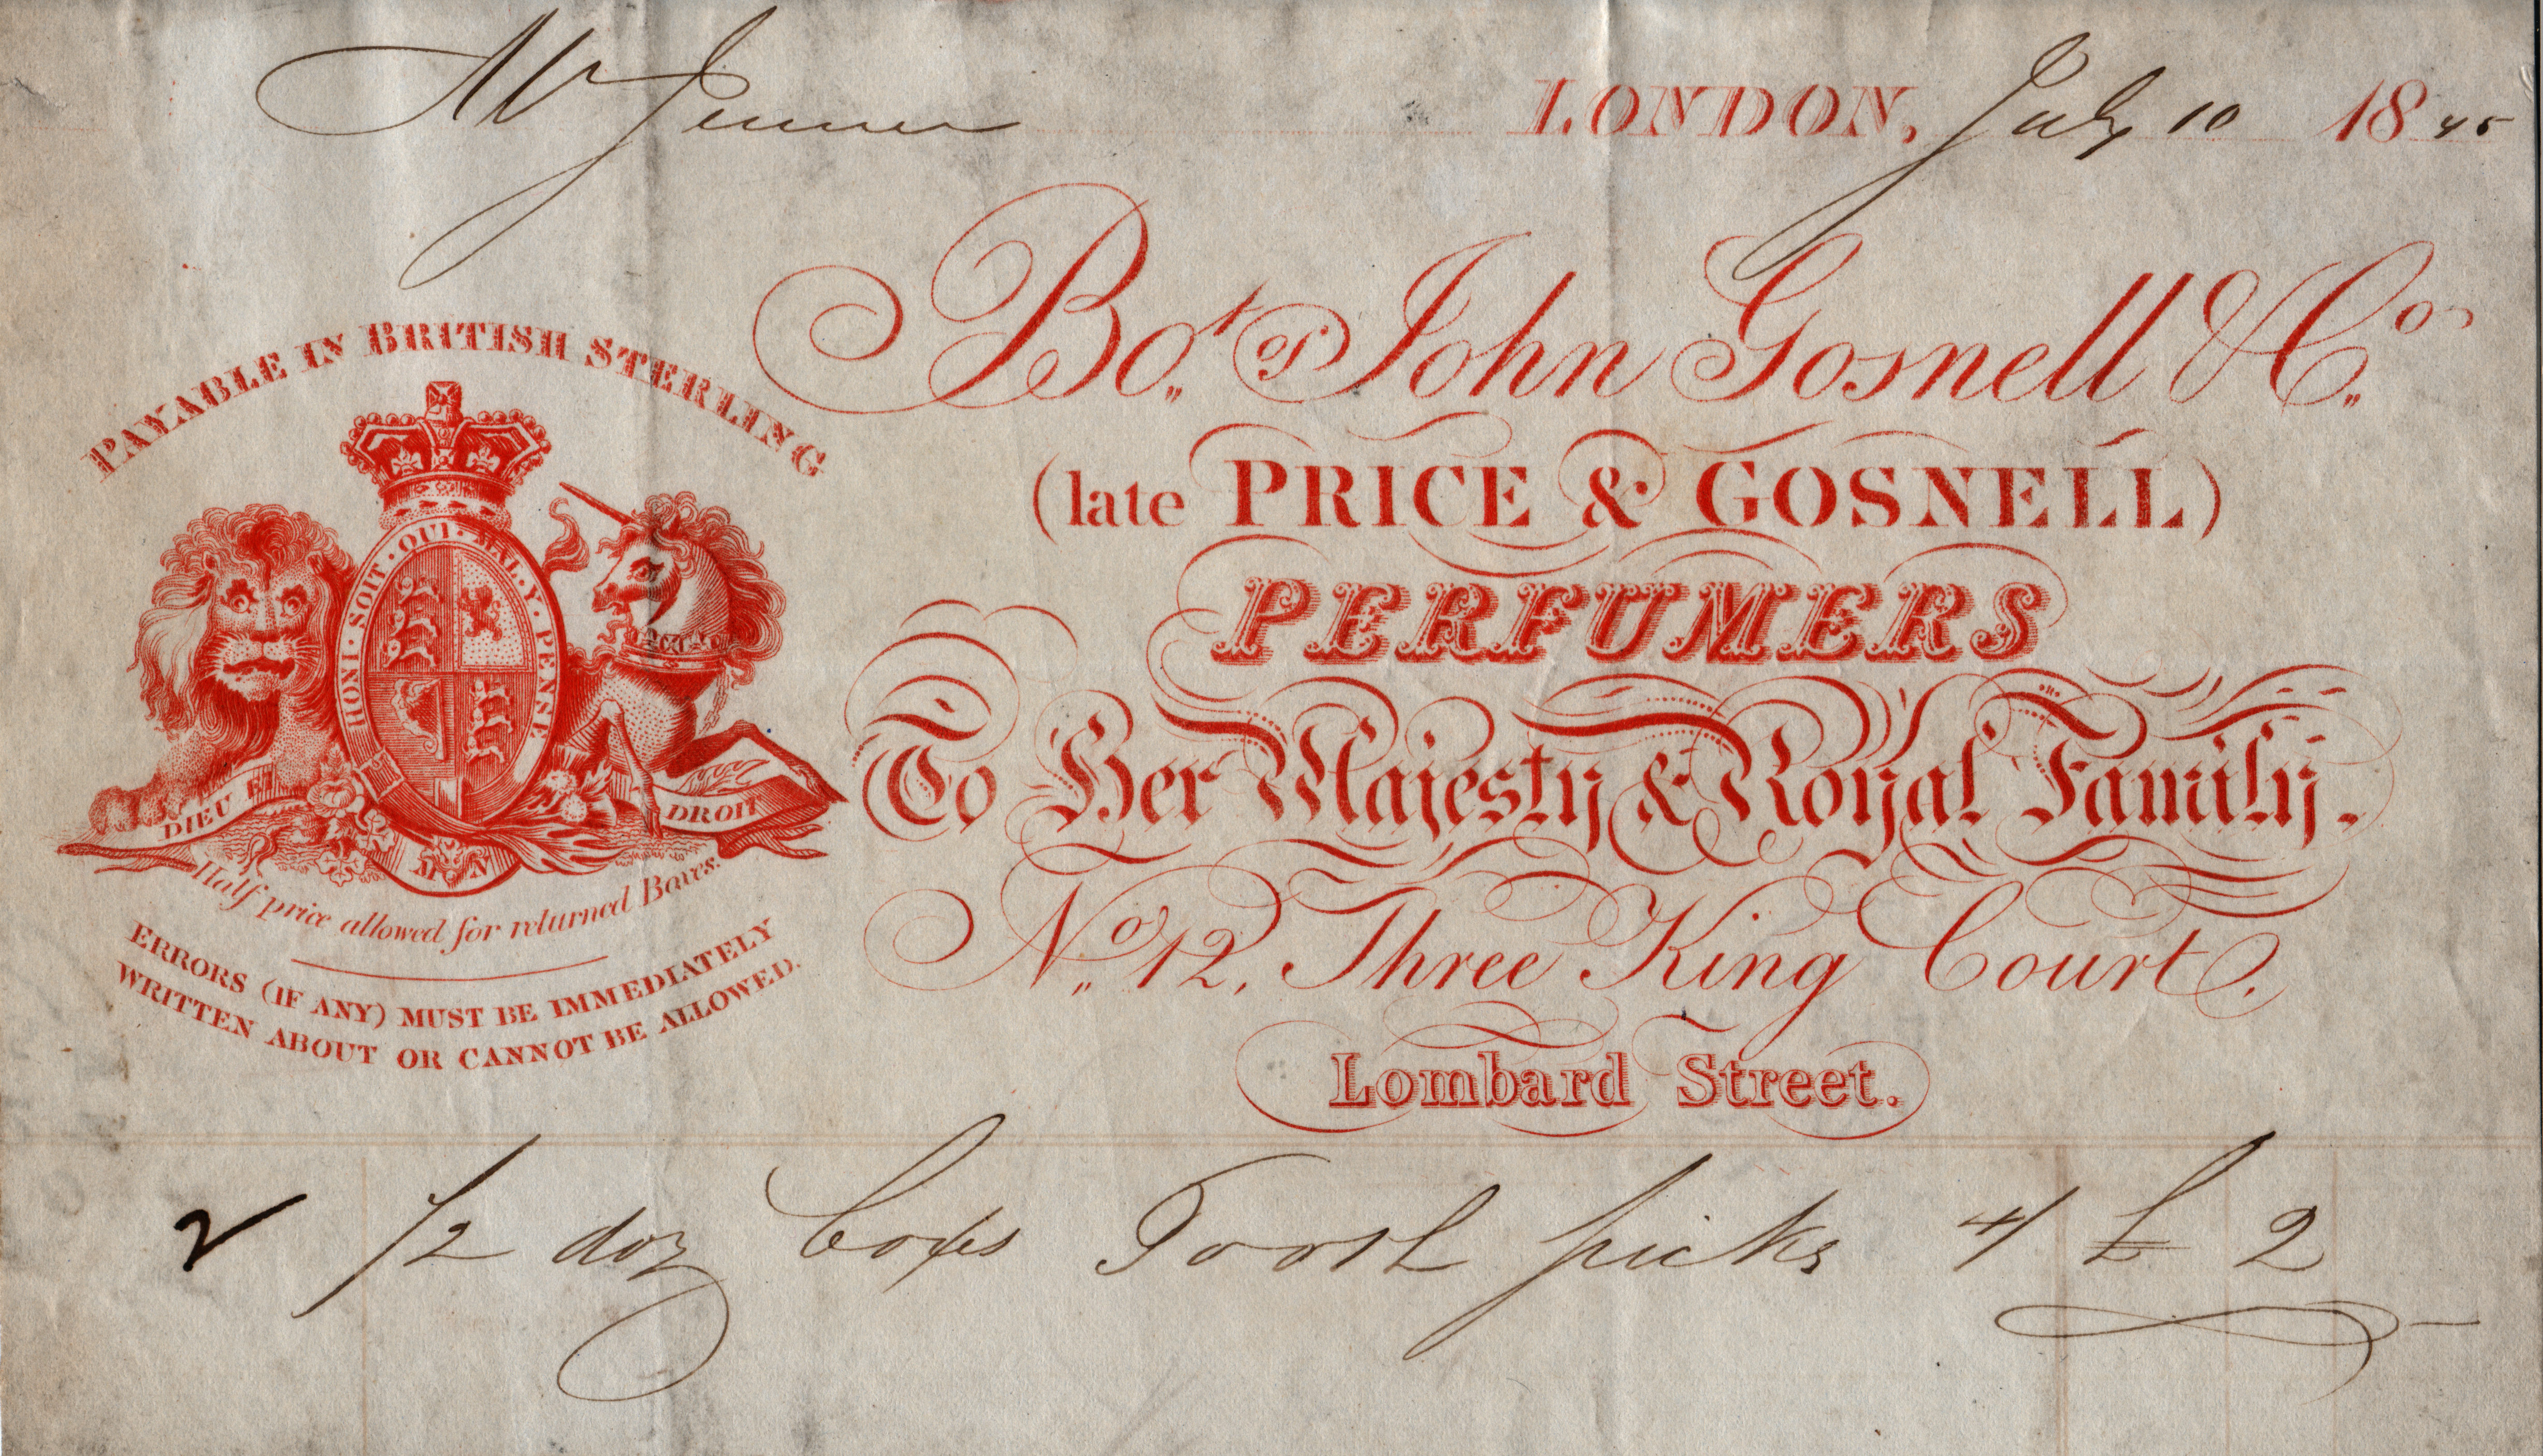 Mr Jenner
LONDON, July 10 1845
Bot. of John Gosnell & Co.
(late PRICE & GOSNELL)
PERFUMERS
To Her Majesty & Royal Family.
No. 12, Three King Court,
Lombard Street.
PAYABLE IN BRITISH STERLING
HONI · SOIT · QUI · MAL · Y · PENSE
DIEU ET
M N
DROIT
Half price allowed for returned Boxes.
ERRORS (IF ANY) MUST BE IMMEDIATELY
WRITTEN ABOUT OR CANNOT BE ALLOWED.
2 1/2 doz boxes Tooth picks 4/ £ 2 -